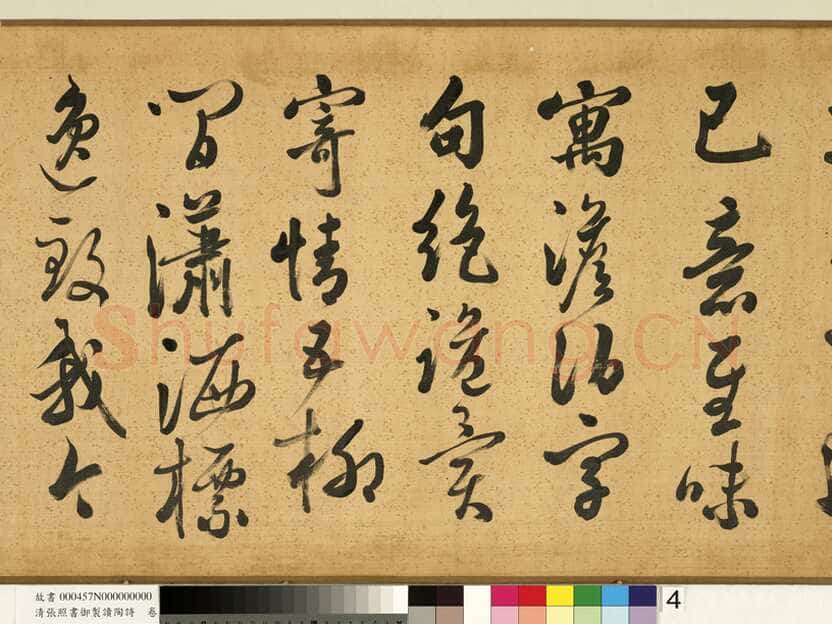 已意至味
寓澹泊字
句絕詭異
寄情五柳
間瀟洒標
逸致我今
Shufawang.CN
故書 000457N000000000
清張照書御製讀陶詩 卷
4